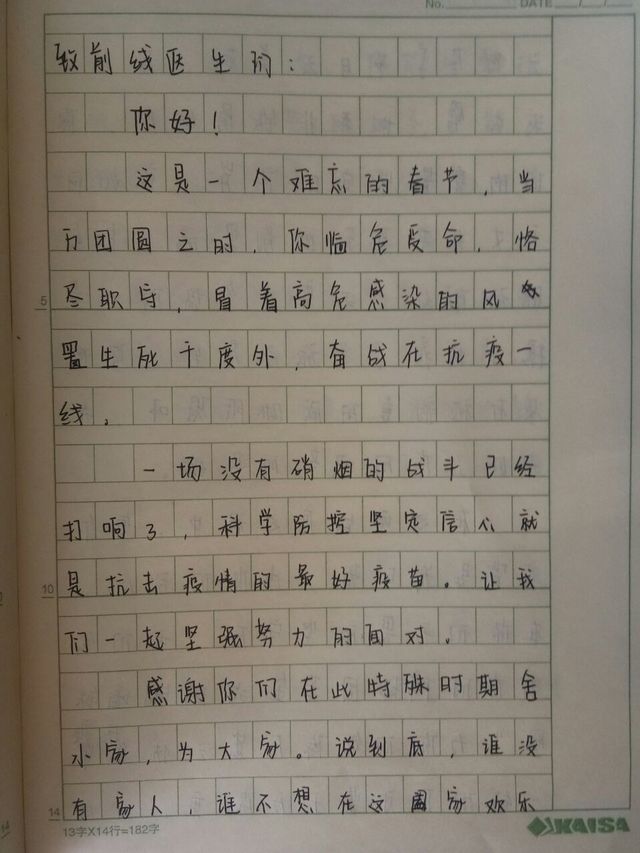 No. DATE
致前线医生们：
你好！
这是一个难忘的春节，当
万团圆之时，你临危受命，恪
尽职守，冒着高危感染的风
置生死于度外，奋战在抗疫一
线。
一场没有硝烟的战斗已经
打响了，科学防控坚定信心就
是抗击疫情的最好疫苗。让我
们一起坚强努力的面对。
感谢你们在此特殊时期舍
小家，为大家。说到底，谁没
有家人，谁不想在这阖家欢乐
5
10
14
13字X14行=182字
KAISA